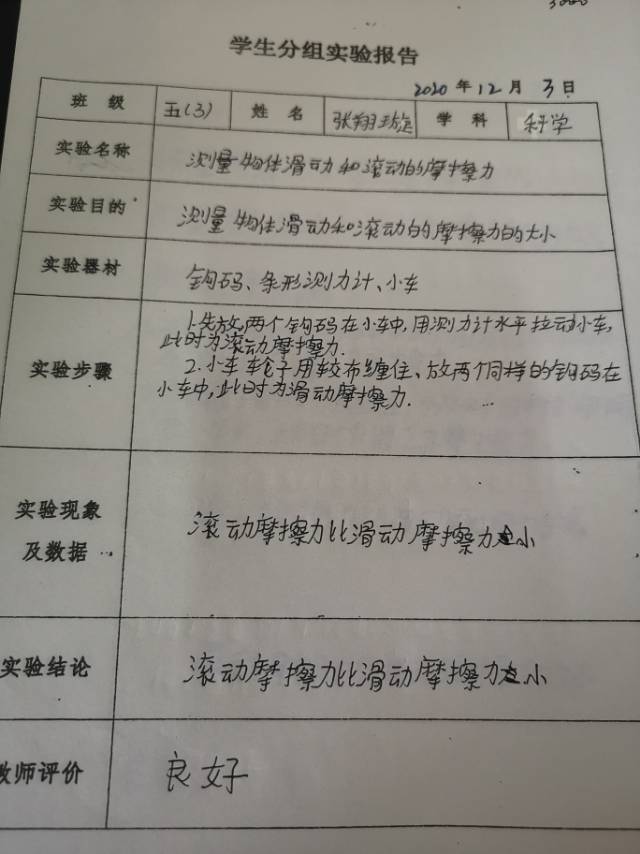 学生分组实验报告
2020年12月3日
班级 五(3) 姓名 张翔璇 学科 科学
实验名称 测量物体滑动和滚动的摩擦力
实验目的 测量物体滑动和滚动的摩擦力的大小
实验器材 钩码、条形测力计、小车
实验步骤
1.先放两个钩码在小车中,用测力计水平拉动小车,
此时为滚动摩擦力.
2.小车车轮子用胶布缠住、放两个同样的钩码在
小车中,此时为滑动摩擦力.
实验现象
及数据
滚动摩擦力比滑动摩擦力小
实验结论 滚动摩擦力比滑动摩擦力小
教师评价 良好